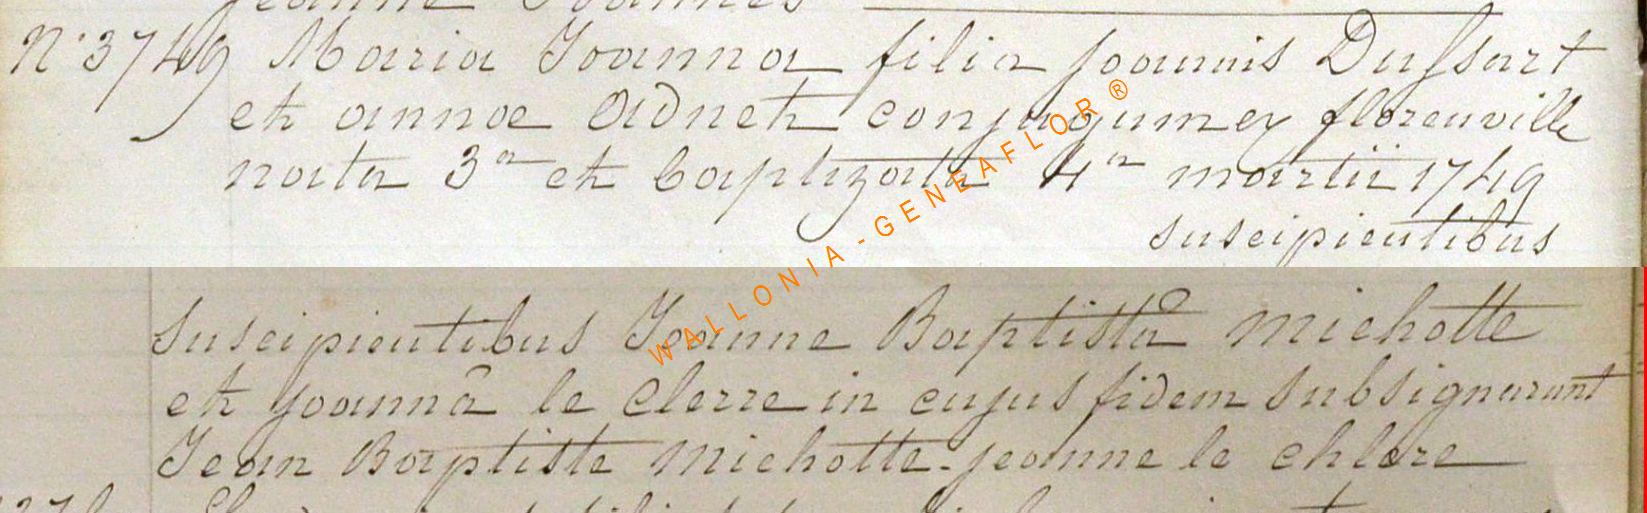 Jeanne Joannes
N° 3749 Maria Joanna filia joannis Dufsart
et annae Adnet conjugum ex florenville
nata 3a et baptizata 4a martii 1749
suscipientibus
Suscipientibus Joanne Baptistâ Michotte
et joannâ le Clerre in cujus fidem subsignarunt
Jean Baptiste Michotte - jeanne le chlere
WALLONIA-GENEAFLOR®